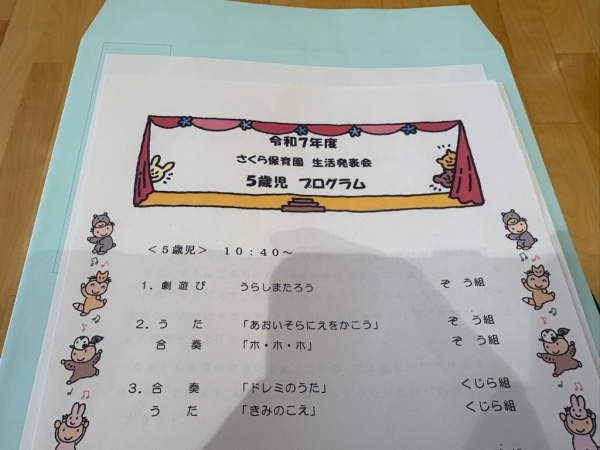 令和7年度
さくら保育園 生活発表会
5歳児 プログラム
＜5歳児＞ 10:40～
1. 劇遊び うらしまたろう ぞう組
2. うた 「あおいそらにえをかこう」 ぞう組
合奏 「ホ・ホ・ホ」 ぞう組
3. 合奏 「ドレミのうた」 くじら組
うた 「きみのこえ」 くじら組